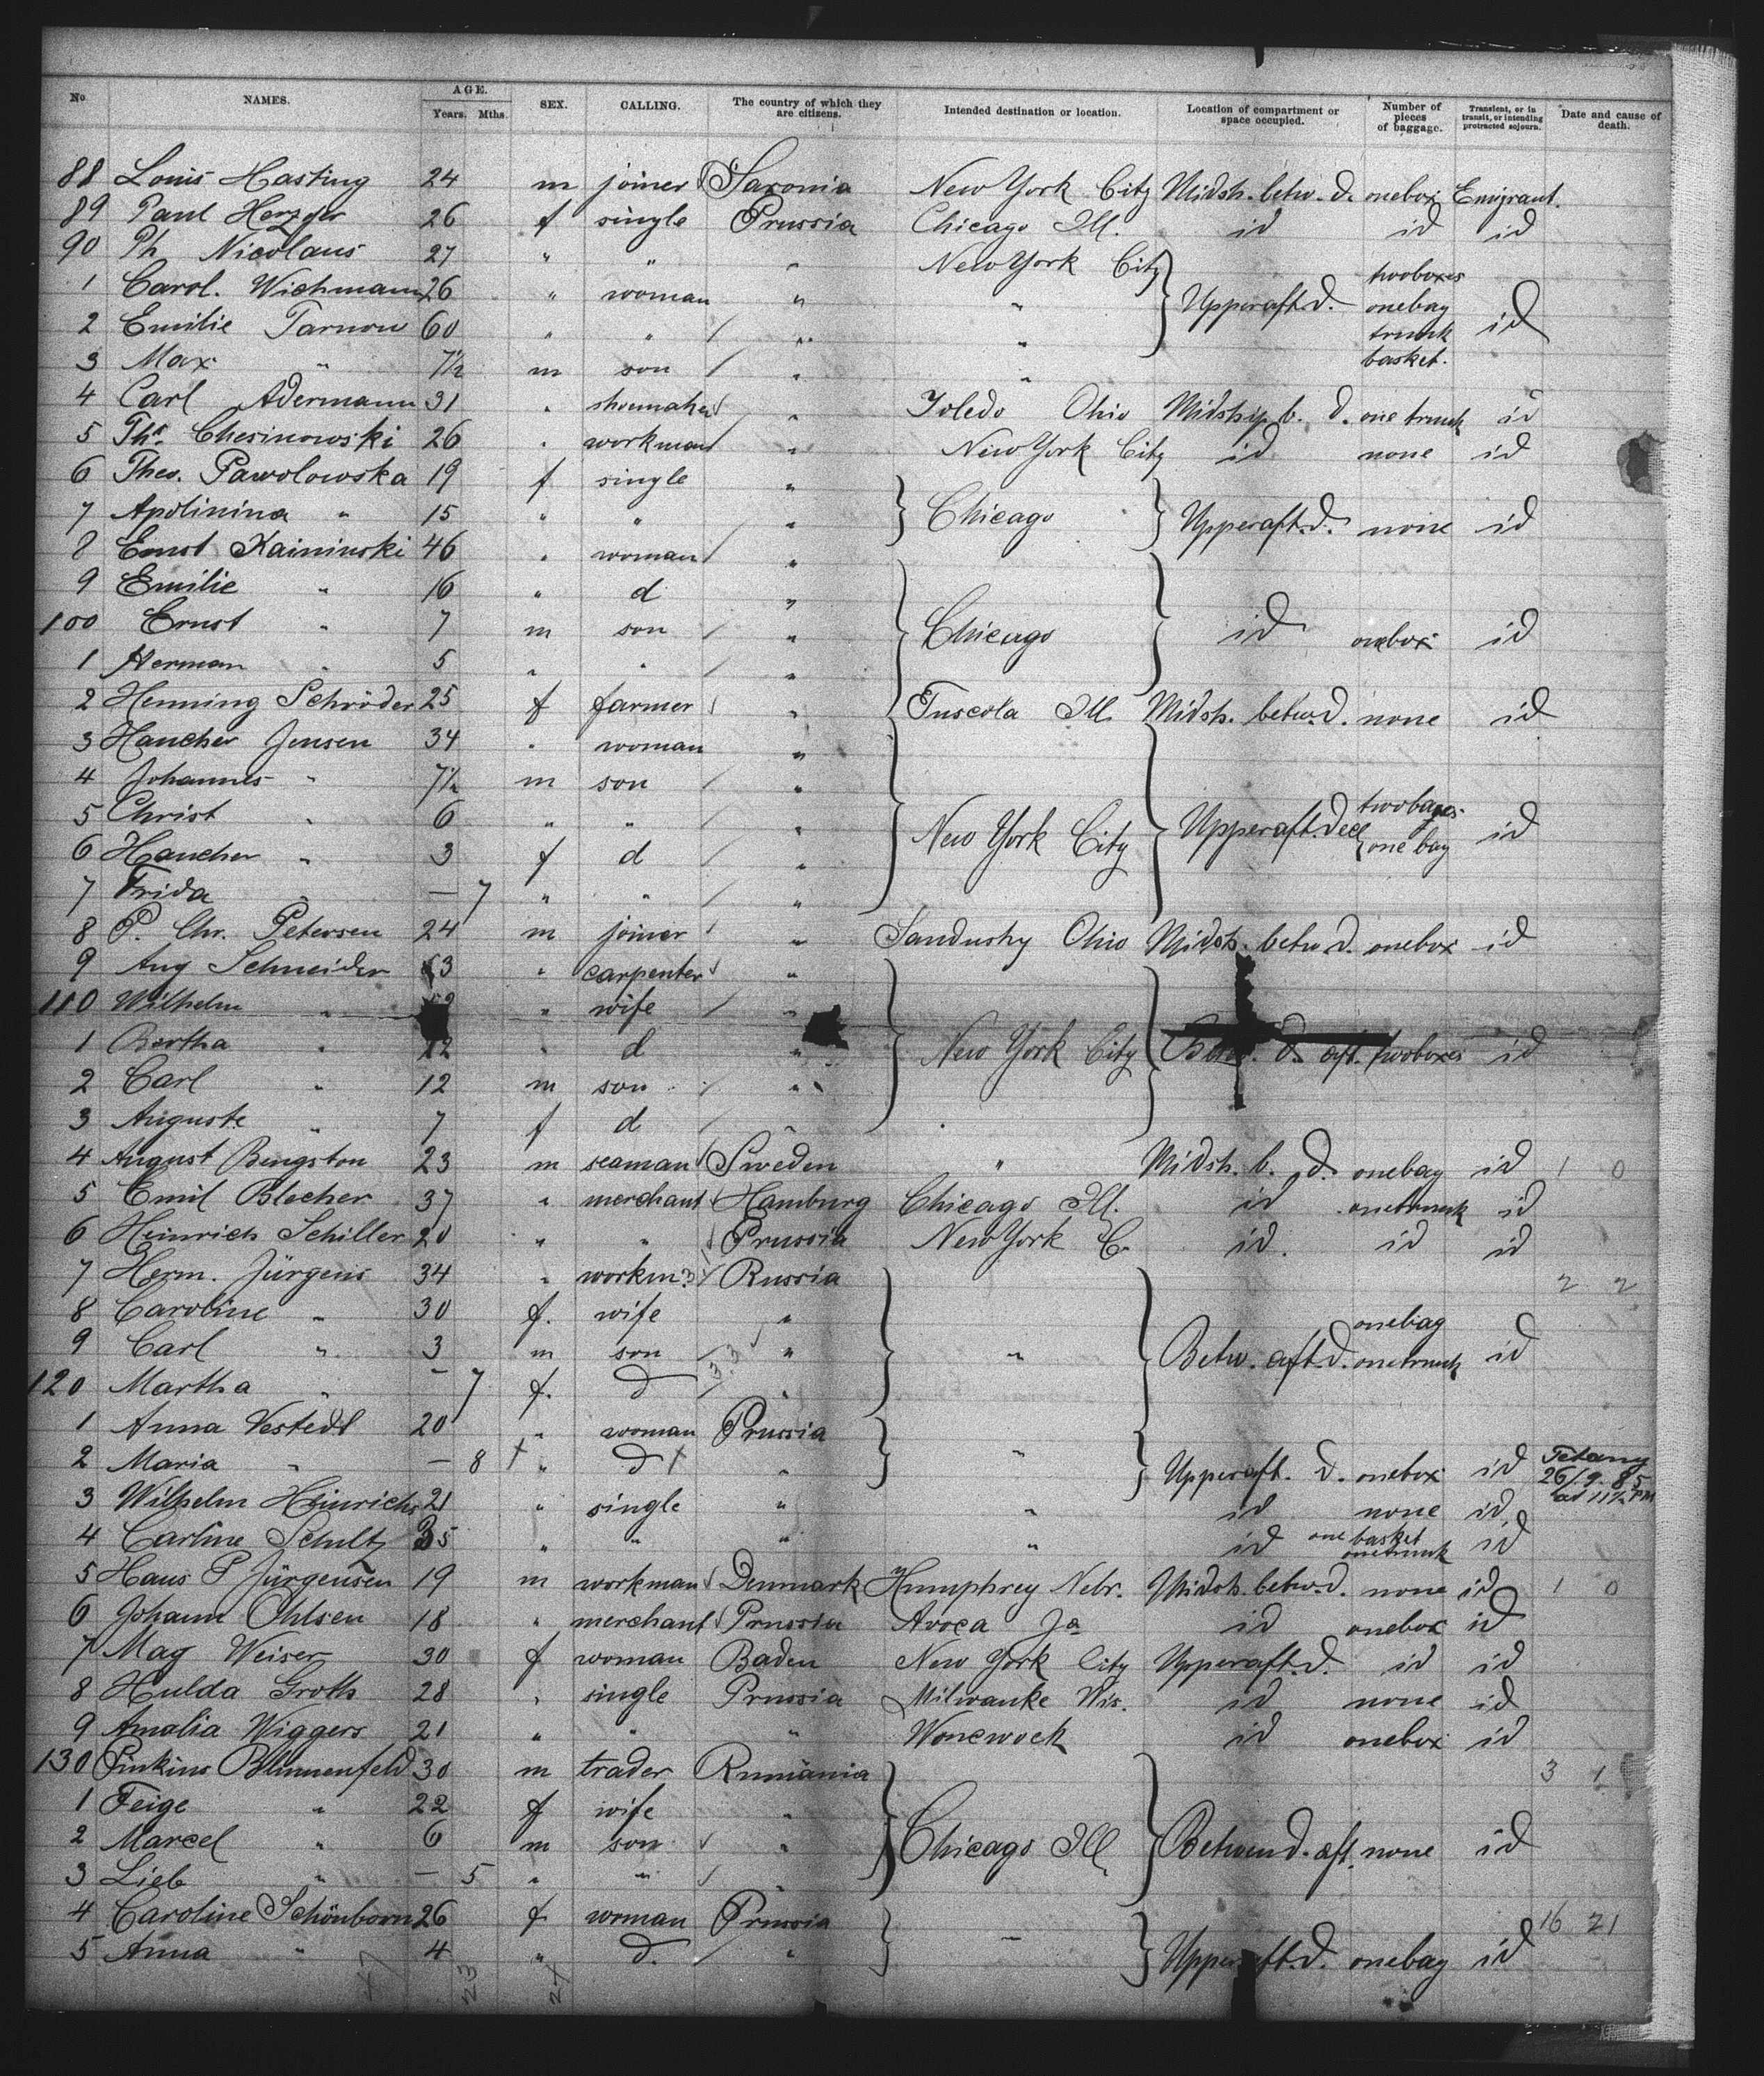 No NAMES. AGE. Years. Mths. SEX. CALLING. The country of which they are citizens. Intended destination or location. Location of compartment or space occupied. Number of pieces of baggage. Transient, or in transit, or intending protracted sojourn. Date and cause of death.
88 Louis Hasting 24 m joiner Saxonia New York City Midsh. betw. d. onebox Emigrant.
89 Paul Herzger 26 f single Prussia Chicago Ill. id id id
90 Ph Nicolaus 27 " " " New York City
1 Carol. Wichmann 26 " woman " " Upperaft.d. twoboxes onebag trunk basket. id
2 Emilie Tarnow 60 " " / " "
3 Max " 7½ m son / " "
4 Carl Adermann 31 " shoemaker " Toledo Ohio Midship b. d. one trunk id
5 Thr. Chesinowski 26 " workman " New York City id none id
6 Theo. Pawolowska 19 f single "
7 Apolinina " 15 " " / " Chicago Upperaft.d. none id
8 Ernst Kaininski 46 " woman / "
9 Emilie " 16 " d "
100 Ernst " 7 m son / " Chicago id onebox id
1 Herman " 5 " " / "
2 Henning Schröder 25 f farmer " Tuscola Ill. Midsh. betw.d. none id
3 Hancher Jensen 34 " woman "
4 Johannes " 7½ m son / "
5 Christ " 6 " " / " New York City Upperaft.deck twobages one bag id
6 Hancher " 3 f d / "
7 Frida " — 7 " " / "
8 P. Chr. Petersen 24 m joiner " Sandusky Ohio Midsh. betw d. onebox id
9 Aug Schneider 3 " carpenter "
110 Wilhelm " " wife / "
1 Bertha " 12 " d " New York City Betw. d. aft. twoboxes id
2 Carl " 12 m son / "
3 Auguste " 7 f d / "
4 August Bengston 23 m seaman Sweden " Midsh. b. d. onebag id 1 0
5 Emil Blecher 37 " merchant Hamburg Chicago Ill. id onetrunk id
6 Heinrich Schiller 20 " " Prussia New York C. id. id id
7 Herm. Jürgens 34 " workm. Russia 2 2
8 Caroline " 30 f. wife "
9 Carl " 3 m son / " " Betw. aft.d. onebag onetrunk id
120 Martha " — 7 f. d / "
1 Anna Vestedt 20 " woman Prussia
2 Maria " — 8 † " d † " " Upperaft. d. onebox id Tetany 26/9.85 at 11½ PM
3 Wilhelm Heinrichs 21 " single " " id none id
4 Carline Schultz 35 " " " " id one basket onetrunk id
5 Hans P Jürgensen 19 m workman Denmark Humphrey Nebr. Midsh. betw.d. none id 1 0
6 Johann Ohlsen 18 " merchant Prussia Avoca Ja id onebox id
7 Mag Weiser 30 f woman Baden New York City Upperaft.d. id id
8 Hulda Groth 28 " single Prussia Milwauke Wis. id none id
9 Amalia Wiggers 21 " " " Wonewock id onebox id
130 Pinkius Blumenfeld 30 m trader Rumänia 3 1
1 Feige " 22 f wife "
2 Marcel " 6 m son " Chicago Ill. Between d. aft. none id
3 Lieb " — 5 " " / "
4 Caroline Schönborn 26 f woman Prussia 16 21
5 Anna " 4 " d. / " " Upperaft.d. onebag id
47 23 24